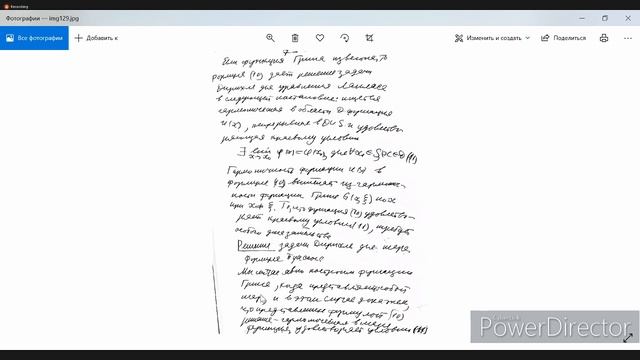 Recording
Фотографии — img129.jpg
Все фотографии
Добавить к
Изменить и создать
Поделиться
7
Если функция Грина известна, то
формула (10) даёт решение задачи
Дирихле для уравнения Лапласа
в следующей постановке: ищется
гармоническая в области D функция
u(x), непрерывная в D∪S и удовлетво-
ряющая краевому условию
(11)
Гармоничность функции u(x) в
формуле (10) вытекает из гармонич-
ности функции Грина G(x,ξ) по x
при x≠ξ. То, что функция (10) удовлетво-
ряет краевому условию (11), требует
особого доказательства
Решение задачи Дирихле для шара
формула Пуассона
Мы сейчас явно построим функцию
Грина, когда представляет собой
шар, и в этом случае докажем,
что представленная формулой (10)
гармоническая в шаре
функция, удовлетворяет условию (11)
CyberLink
PowerDirector